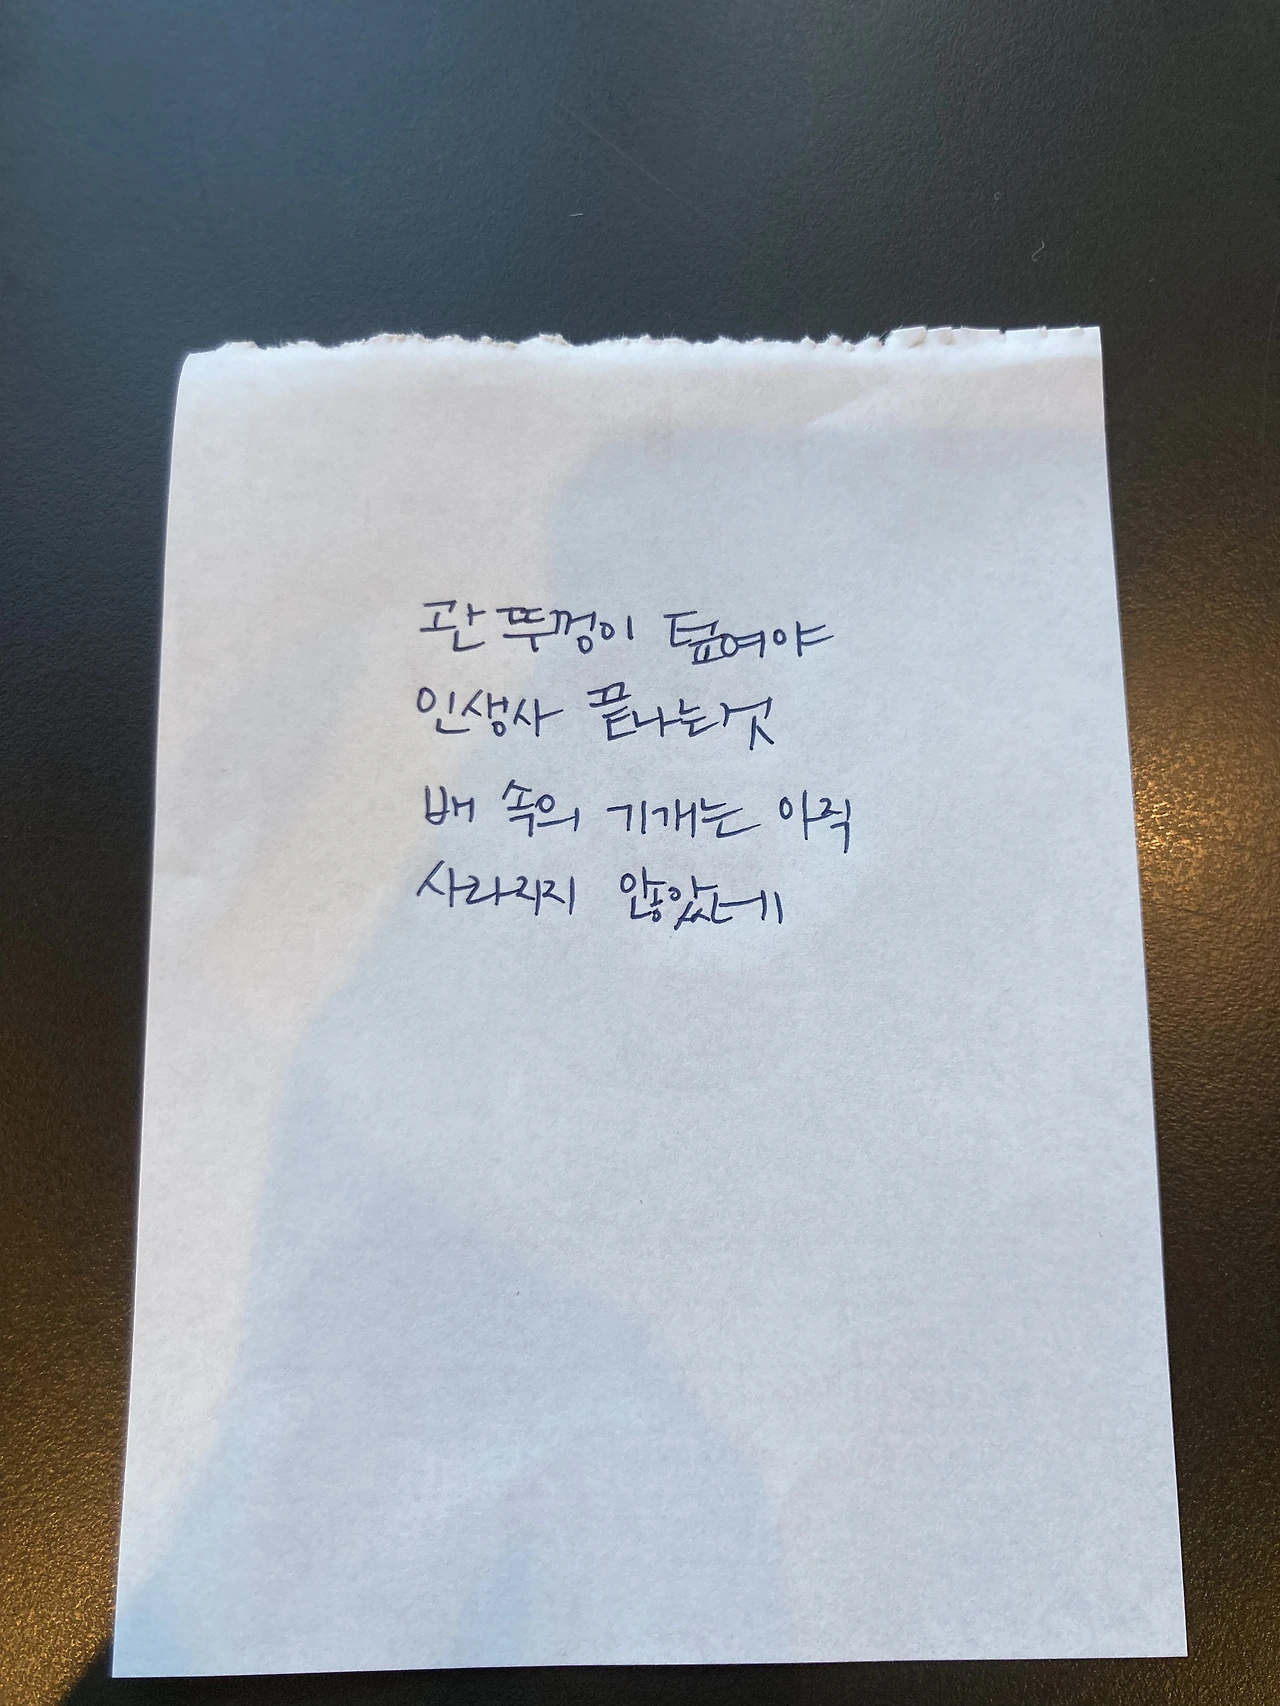 관 뚜껑이 덮여야
인생사 끝나는것
배 속의 기개는 아직
사라지지 않았는데